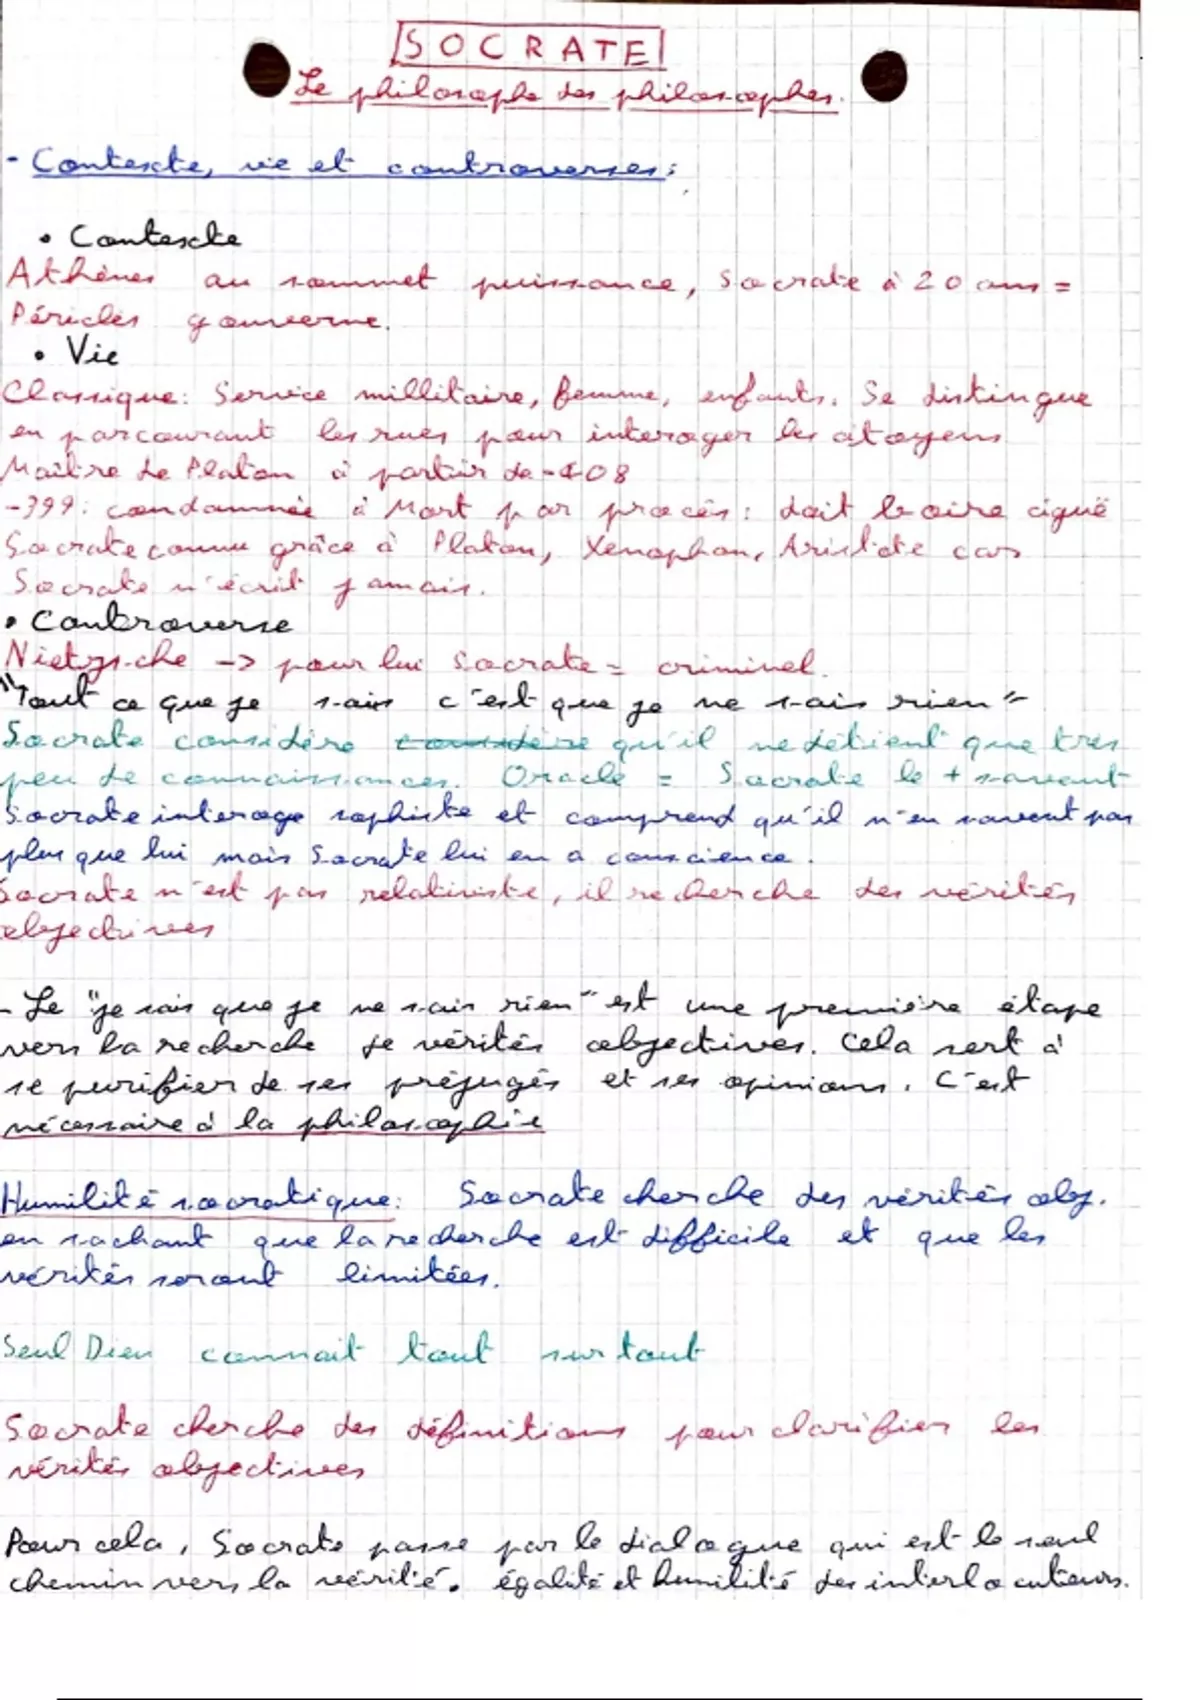 SOCRATE
Le philosophe des philosophes.
- Contexte, vie et controverses :
• Contexte
Athènes au sommet puissance, Socrate à 20 ans =
Péricles gouverne.
• Vie
Classique : Service millitaire, femme, enfants. Se distingue
en parcourant les rues pour interoger les citoyens
Maître de Platon à partir de -408
-399 : condamnée à Mort par procès : doit boire ciguë
Socrate connu grâce à Platon, Xenophon, Aristote car
Socrate n'écrit jamais.
• Controverse
Nietzsche -> pour lui Socrate = criminel.
"Tout ce que je sais c'est que je ne sais rien"
Socrate considère considère qu'il ne détient que très
peu de connaissances. Oracle = Socrate le + savant
Socrate interoge sophiste et comprend qu'il n'en savent pas
plus que lui mais Socrate lui en a conscience.
Socrate n'est pas relativiste, il recherche des vérités
objectives
- Le "je sais que je ne sais rien" est une première étape
vers la recherche de vérités objectives. Cela sert à
se purifier de ses préjugés et ses opinions. C'est
nécessaire à la philosophie
Humilité socratique : Socrate cherche des vérités obj.
en sachant que la recherche est difficile et que les
vérités seront limitées.
Seul Dieu connait tout sur tout
Socrate cherche des définitions pour clarifier les
vérités objectives
Pour cela, Socrate passe par le dialogue qui est le seul
chemin vers la vérité. égalité et humilité des interlocuteurs.